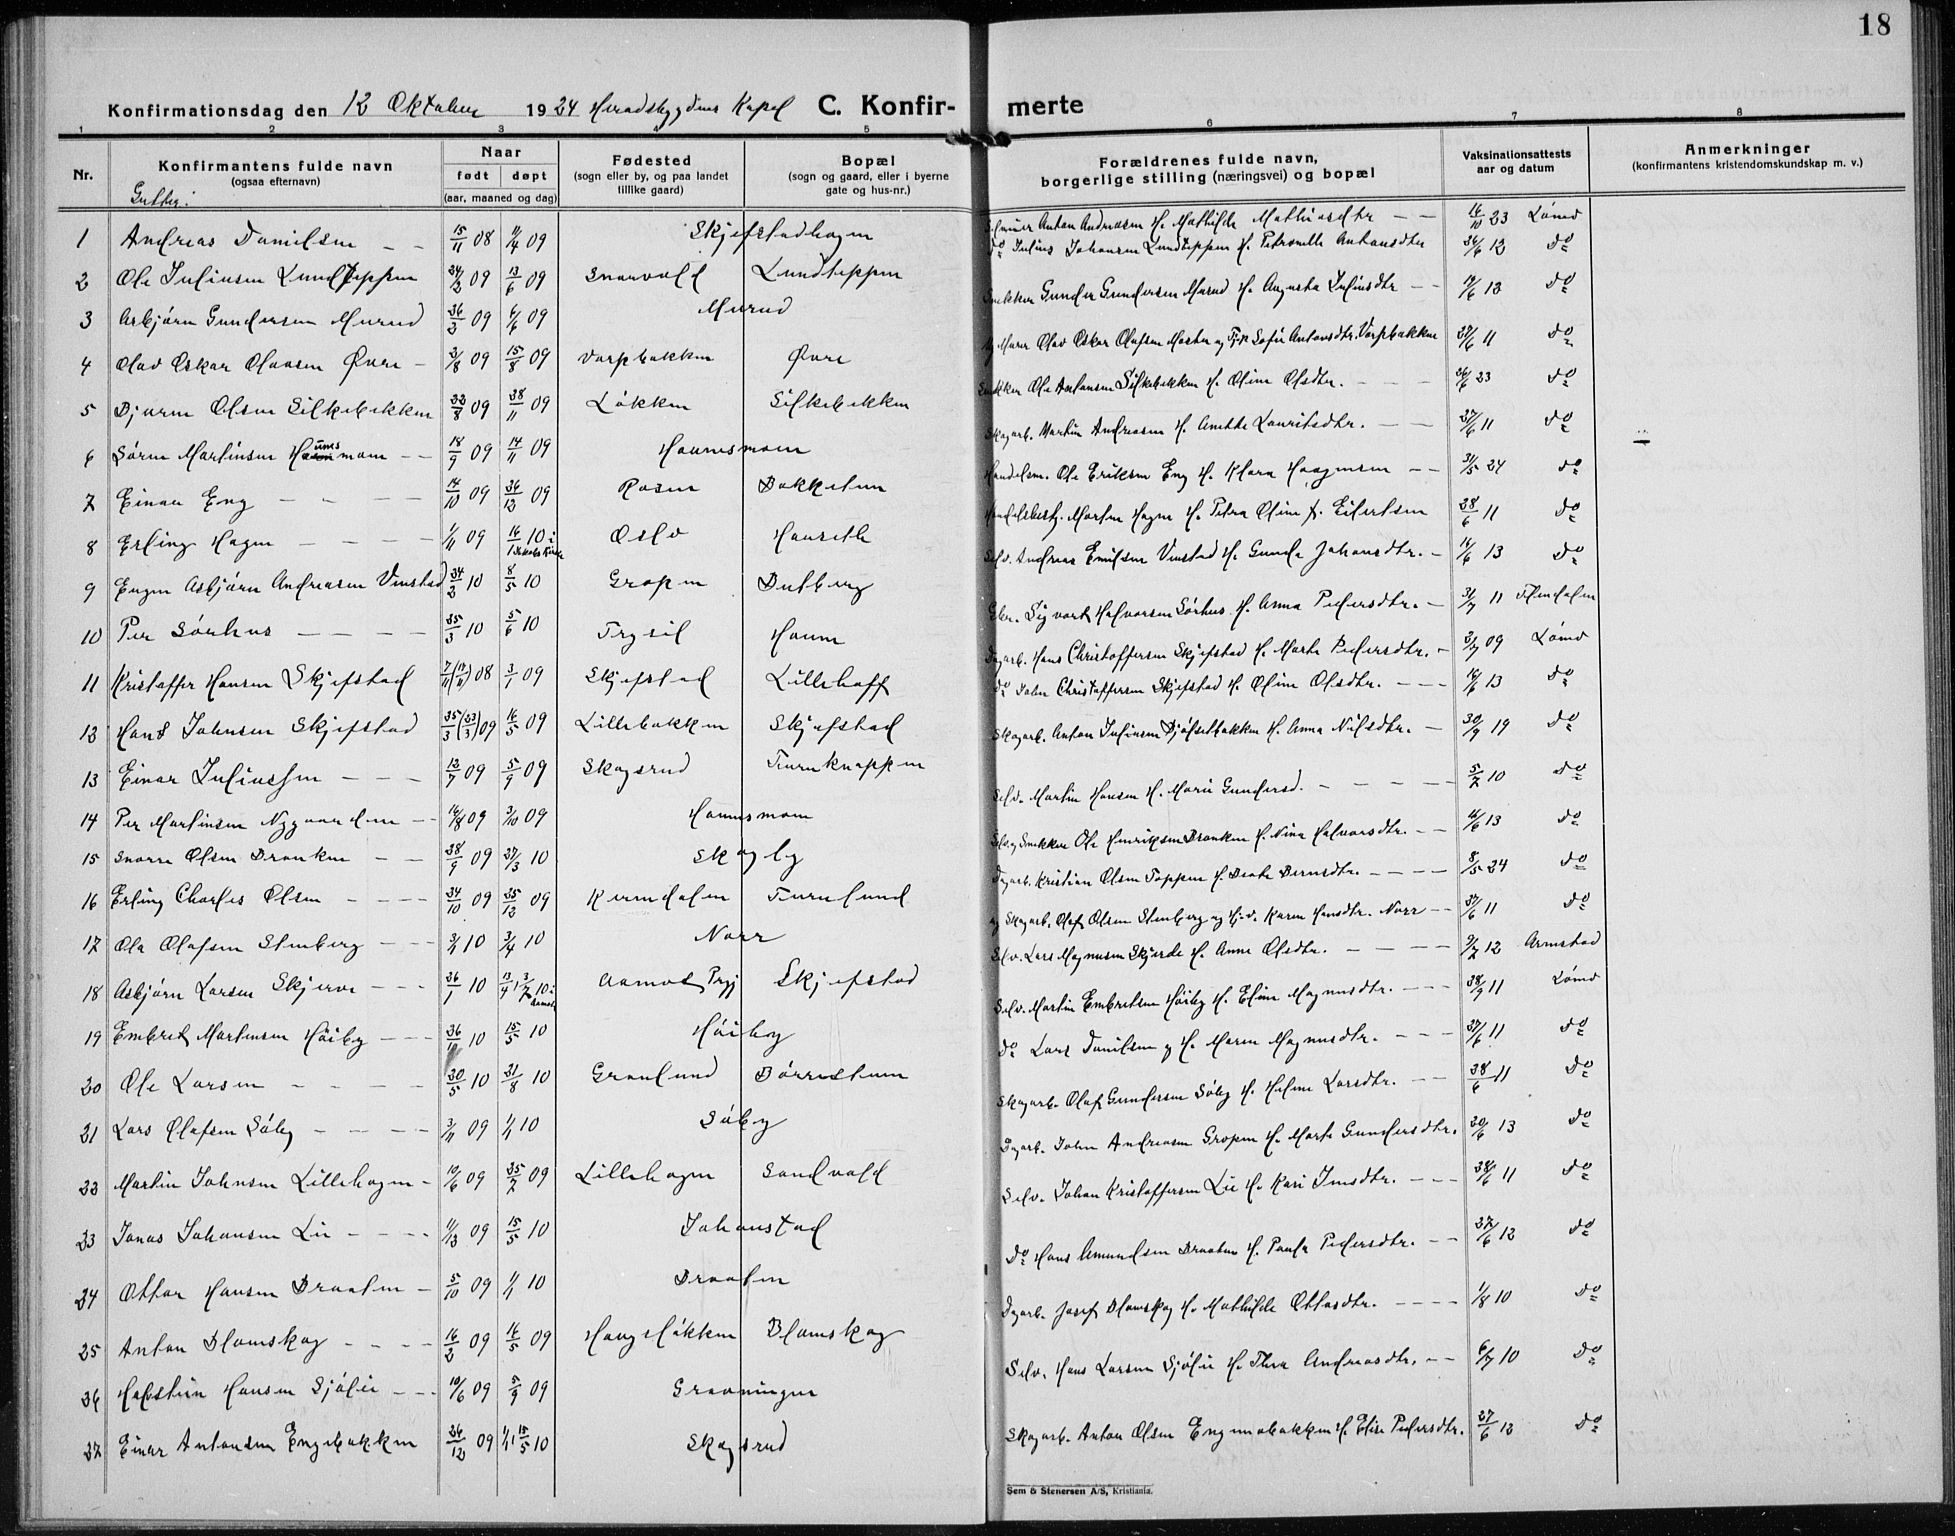 18
Konfirmationsdag den 12 Oktober 1924 Heradsbygdens Kapel C. Konfir- merte
1 2 3 4 5 6 7 8
Nr. Konfirmantens fulde navn (ogsaa efternavn) Naar født døpt (aar, maaned og dag) Fødested (sogn eller by, og paa landet tillike gaard) Bopæl (sogn og gaard, eller i byerne gate og hus-nr.) Forældrenes fulde navn, borgerlige stilling (næringsvei) og bopæl Vaksinationsattests aar og datum Anmerkninger (konfirmantens kristendomskundskap m. v.)
Gutter:
1 Andreas Danielsen 15/11 08 11/4 09 Skjefstadhagen Anton Andreassen H. Mathilde Mathiasdtr 16/10 23 Lømo
2 Ole Juliusen Lundteppen 24/2 09 13/6 09 Snarvold Lundteppen do Julius Johansen Lundteppen H. Petronelle Antonsdtr 26/6 12 do
3 Asbjørn Gundersen Murud 26/2 09 6/6 09 Murud Snekker Gunder Gundersen Murud H. Augusta Juliusdtr 19/6 13 do
4 Olav Oskar Olavsen Øvre 3/8 09 15/8 09 Varpbakken Øvre Olav Oskar Olafsen Sofie Antonsdtr. Varpbakken 27/6 11 do
5 Bjarne Olsen Silkebekken 22/8 09 28/11 09 Løkken Silkebekken Snekker Ole Antonsen Silkebekken H. Oline Olsdtr. 26/6 23 do
6 Søren Martinsen Haunsmoen 18/9 09 14/11 09 Haunsmoen Skogarb. Martin Andreassen H. Anethe Lauritsdtr. 27/6 11 do
7 Einar Eng 14/10 09 26/12 09 Rosen Bakketun Handelsm. Ole Eriksen Eng H. Klara Haagensen 31/5 24 do
8 Erling Hagen 1/11 09 16/1 10 i Jakobs Kirke Oslo Hauseth Handelsbest. Morten Hagen H. Petra Oline f. Eilertsen 28/6 11 do
9 Eugen Asbjørn Andreassen Vinstad 24/2 10 8/5 10 Gropen Dulberg Selv. Andreas Emilsen Vinstad H. Gunda Johansdtr. 14/6 13 do
10 Per Sørhus 25/3 10 5/6 10 Trysil Haum Gbr. Sigvart Halvorsen Sørhus H. Anna Pedersdtr. 31/7 11
11 Kristoffer Hansen Skjefstad 08 3/1 09 Skjefstad Lillehoff Dagarb. Hans Christoffersen Skjefstad H. Marte Pedersdtr. 3/7 09 Lømo
12 Hans Johnsen Skjefstad 25/3 (23/3) 09 16/5 09 Lillebakken Skjefstad do John Christoffersen Skjefstad H. Oline Olsdtr. 16/6 13 do
13 Einar Juliussen 12/7 09 5/9 09 Skogsrud Furuknappen Skogarb. Anton Juliusen Djølsetbakken H. Anna Nilsdtr. 30/9 19 do
14 Per Martinsen Nygaarden 16/8 09 3/10 09 Haunsmoen Selv. Martin Hansen H. Marie Gundersd. 5/7 10 do
15 Snorre Olsen Braaten 28/9 09 27/3 10 Skogly Selv. og Snekker Ole Henriksen Braaten H. Nina Halvorsdtr. 16/6 13 do
16 Erling Charles Olsen 24/10 09 25/12 09 Kverndalen Furulund Dagarb. Kristian Olsen Toppen H. Beate Berntsdtr. 8/5 24 do
17 Ola Olafsen Stenberg 3/1 10 3/4 10 Norr Skogarb. Olaf Olsen Stenberg og Karen Hansdtr. Norr 27/6 11 do
18 Asbjørn Larsen Skjerve 26/1 10 Aamot Skjefstad Selv. Lars Magnussen Skjerde H. Anne Olsdtr. 9/7 12
19 Embret Martinsen Høiby 26/10 10 15/5 10 Høiby Selv. Martin Embretsen Høiby H. Eline Magnusdtr. 28/7 11 Lømo
20 Ole Larsen 20/5 10 21/8 10 Granlund Børrestuen do Lars Danielsen og H. Maren Magnusdtr. 27/6 11 do
21 Lars Olafsen Søby 3/11 09 1/1 10 Søby Skogarb. Olaf Gundersen Søby H. Helene Larsdtr. 28/6 11 do
22 Martin Johnsen Lillehagen 10/6 09 25/7 09 Lillehagen Sandvold Dagarb. John Andreassen Gropen H. Marte Gundersdtr. 20/6 13 do
23 Jonas Johansen Lie 11/12 09 15/5 10 Johanstad Selv. Johan Kristoffersen Lie H. Kari Jensdtr. 28/6 11 do
24 Ottar Hansen Braaten 5/10 09 1/1 10 Braaten do Hans Amundsen Braaten H. Paula Pedersdtr. 27/6 12 do
25 Anton Blomskog 16/2 09 16/5 09 Haugsløkken Blomskog Dagarb. Josef Blomskog H. Mathilde Ottosdtr. 1/8 10 do
26 Halstein Hansen Sjølie 10/6 09 5/9 09 Gravningen Selv. Hans Larsen Sjølie H. Thea Andreasdtr. 6/7 10 do
27 Einar Antonsen Engebakken 26/12 09 15/5 10 Skogsrud Skogarb. Anton Olsen Engenebakken H. Elise Pedersdtr. 27/6 12 do
Sem & Stenersen A/S, Kristiania.